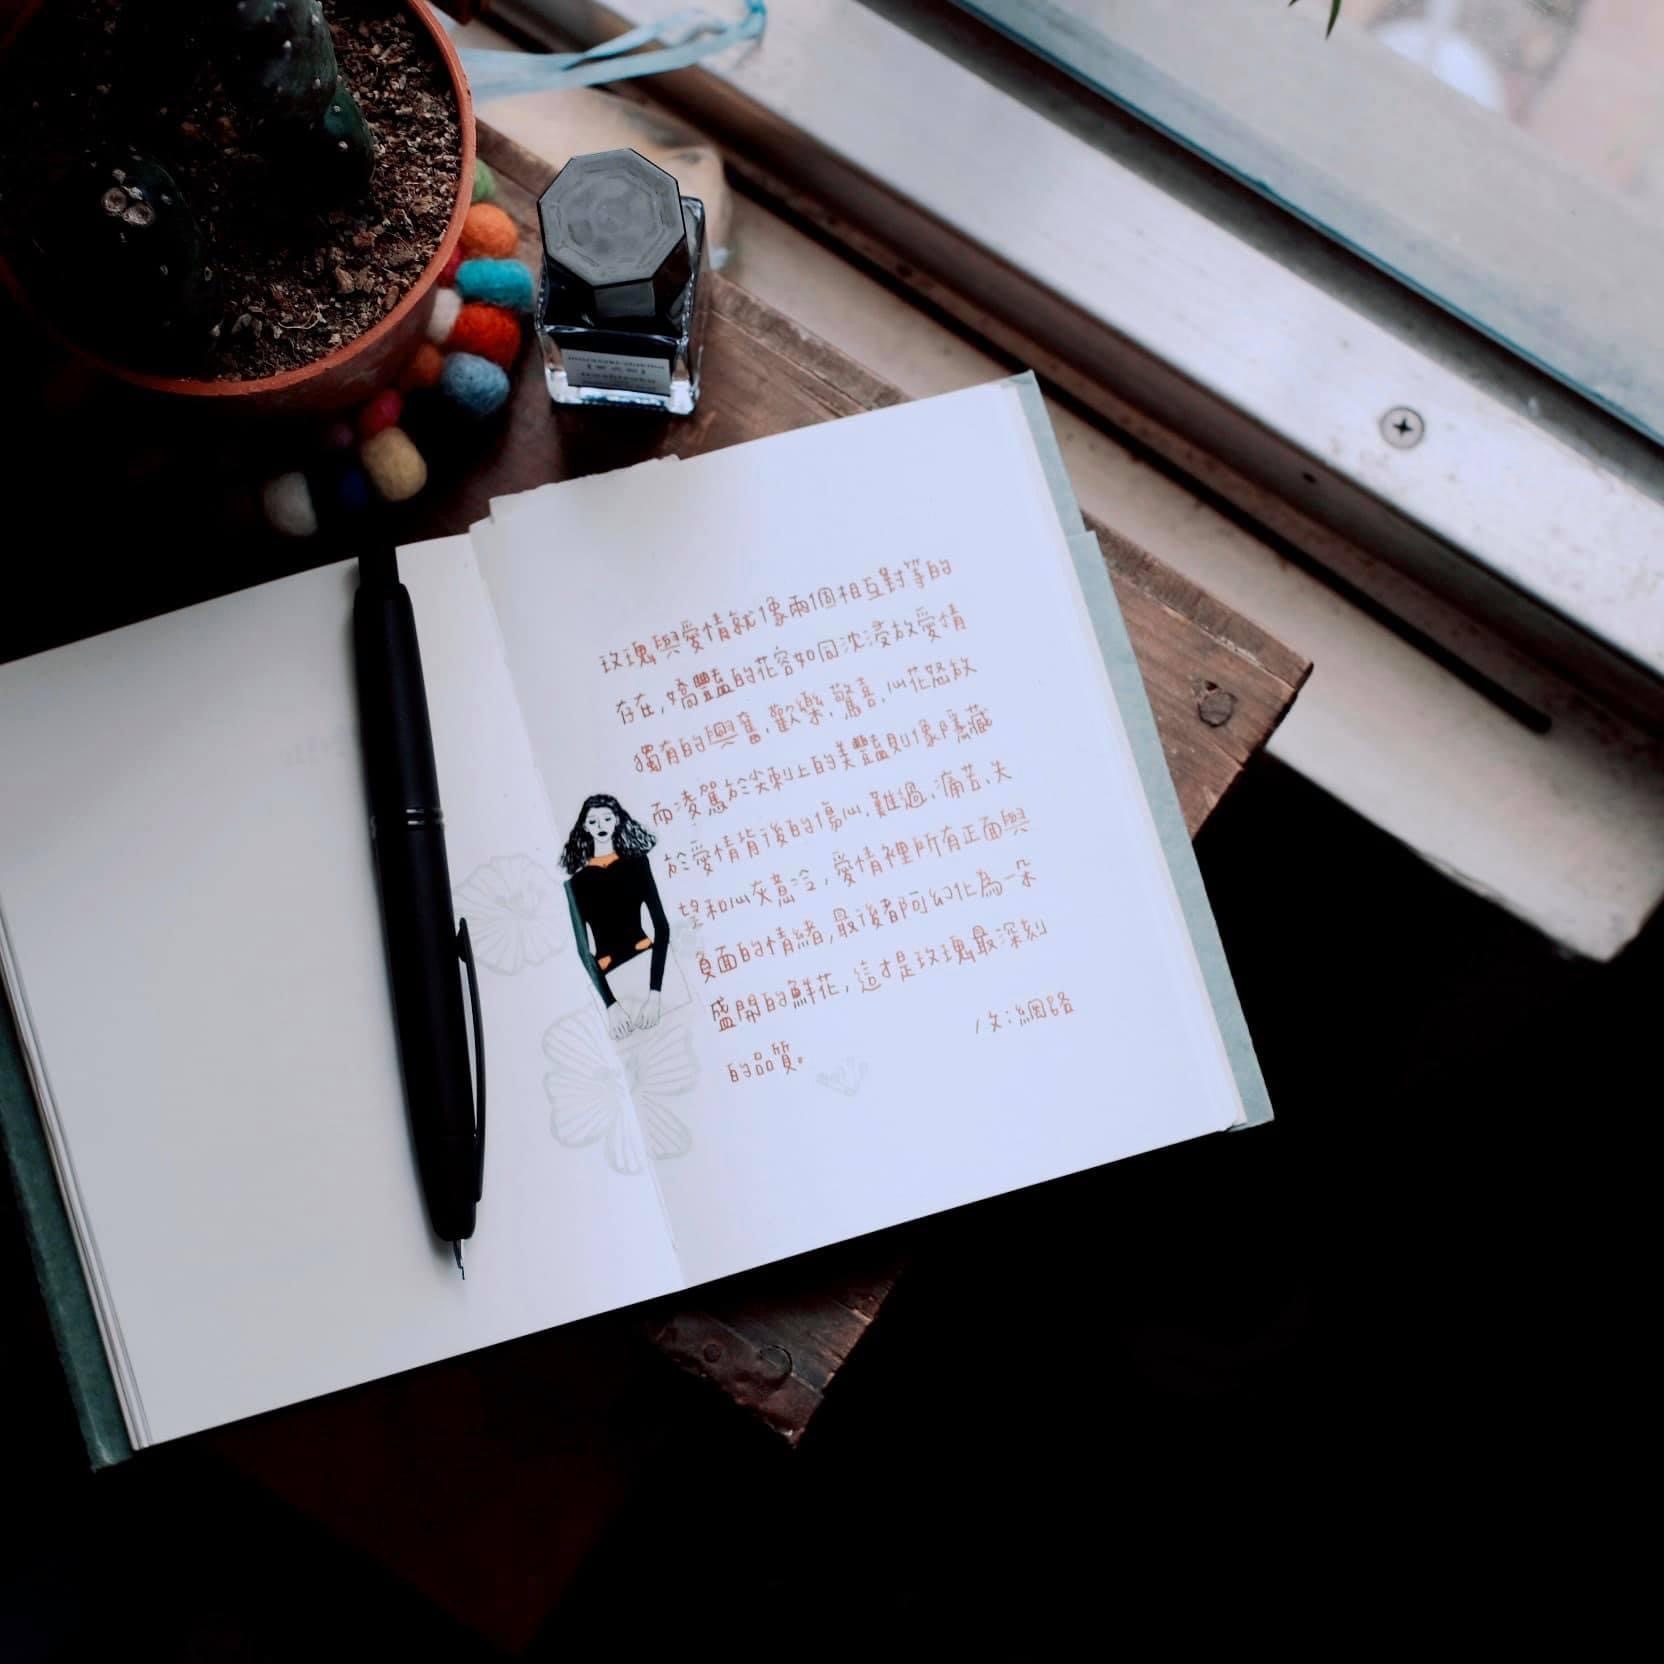 玫瑰與愛情就像兩個相互對等的
存在，嬌豔的花容如同沈浸放愛情
獨有的興奮、歡樂、驚喜、心花怒放
而凌駕於尖刺上的美豔則像隱藏
於愛情背後的傷心、難過、痛苦、失
望和心灰意冷，愛情裡所有正面與
負面的情緒，最後都阿幻化為一朵
盛開的鮮花，這才是玫瑰最深刻
的品質。
/文：網路